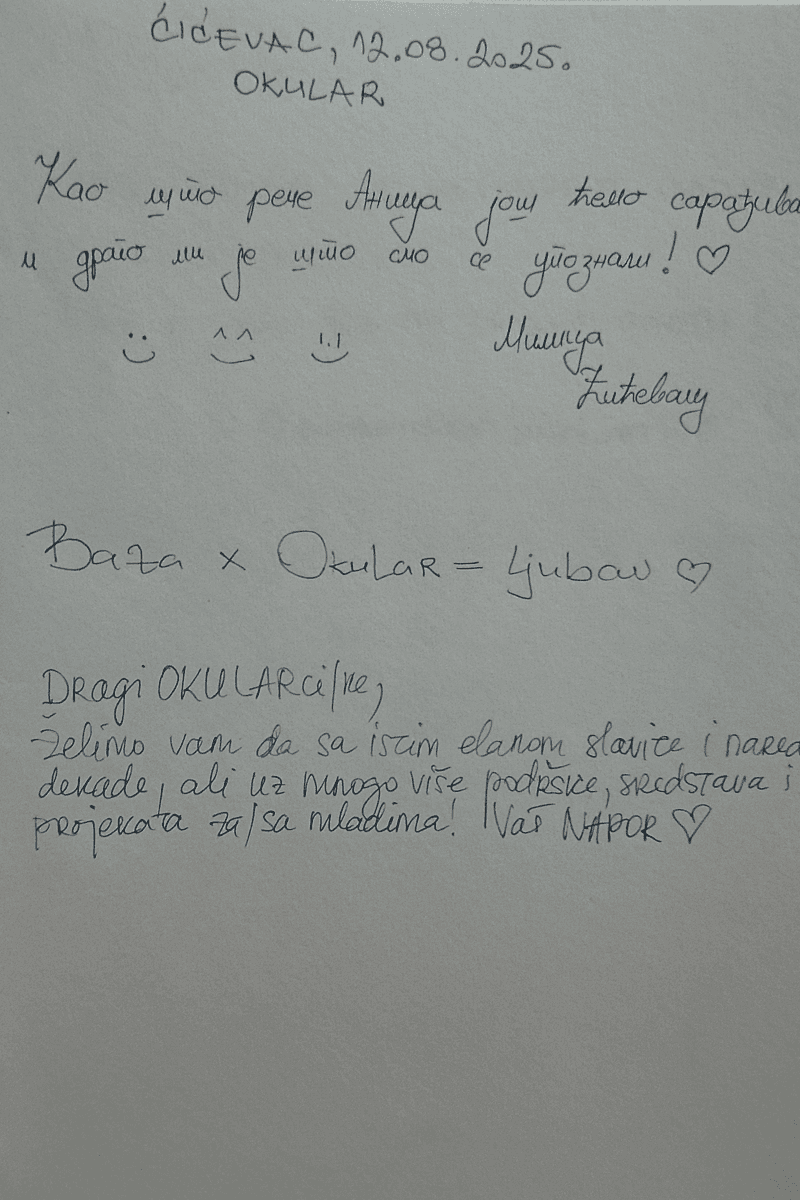 ĆIĆEVAC, 12.08.2025.
OKULAR
Као што рече Аница још ћемо сарађива
и драго ми је што смо се упознали! ♡
Милица
Ћићевац
Baza x Okular = Ljubav ♡
Dragi OKULARci/ke,
Želimo vam da sa istim elanom slavite i nared
dekade, ali uz mnogo više podrške, sredstava i
projekata za/sa mladima! Vaš NAPOR ♡